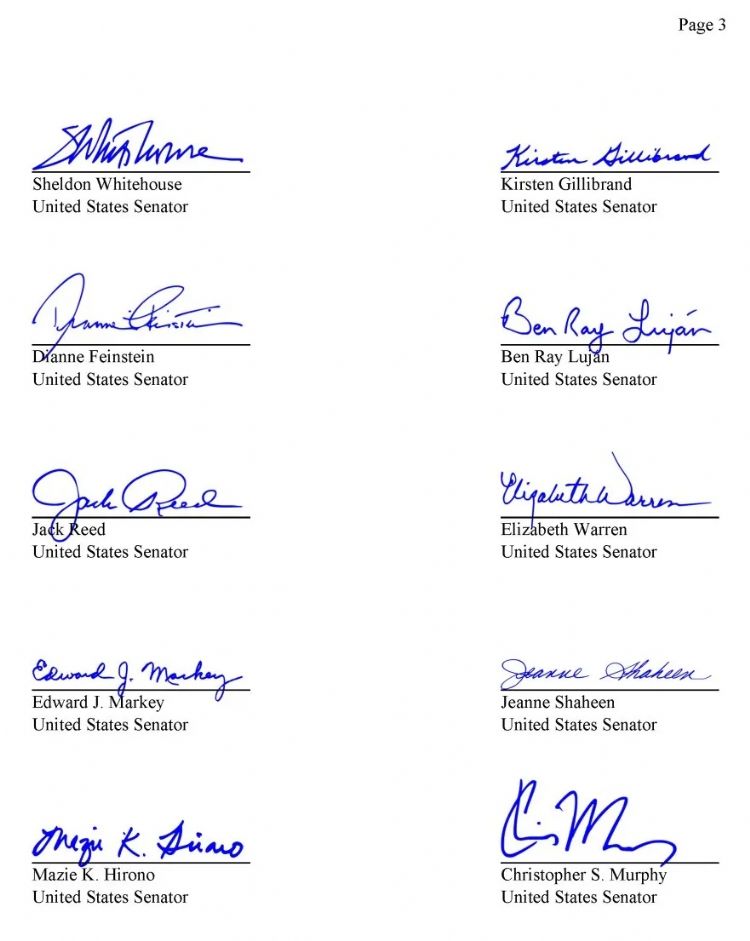 Page 3
SWhitehouse
Kirsten Gillibrand
Sheldon Whitehouse
Kirsten Gillibrand
United States Senator
United States Senator
Dianne Feinstein
Ben Ray Luján
Dianne Feinstein
Ben Ray Luján
United States Senator
United States Senator
Jack Reed
Elizabeth Warren
Jack Reed
Elizabeth Warren
United States Senator
United States Senator
Edward J. Markey
Jeanne Shaheen
Edward J. Markey
Jeanne Shaheen
United States Senator
United States Senator
Mazie K. Hirono
Chris M
Mazie K. Hirono
Christopher S. Murphy
United States Senator
United States Senator